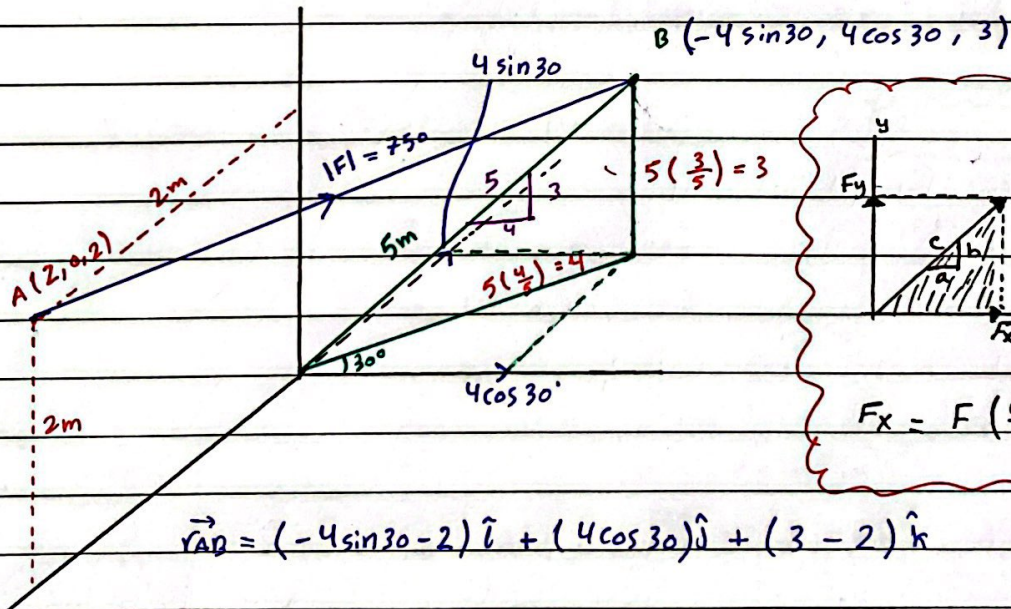 B (-4 sin30, 4cos30, 3)
4 sin30
|F| = 750
2m
5
3
4
5 (3/5) = 3
A (2,0,2)
5m
5(4/5) = 4
30°
4cos30°
2m
y
Fy
c
b
a
Fx = F (
r⃗AB = (-4sin30-2) î + (4cos30)ĵ + (3-2) k̂